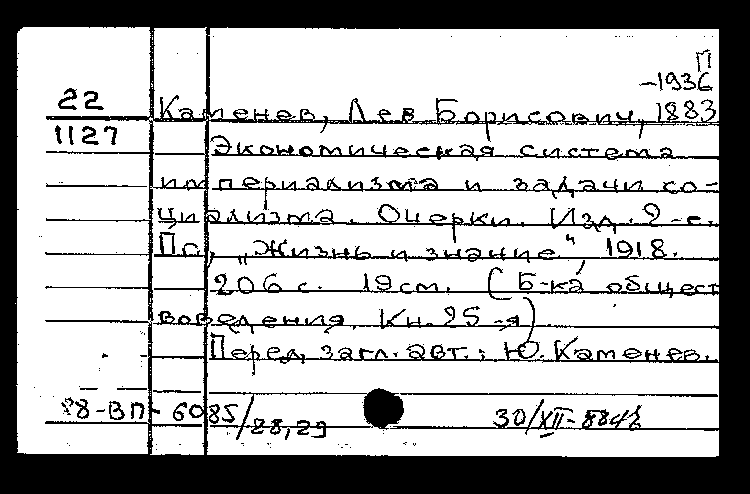 П
-1936
22 Каменев, Лев Борисович, 1883
1127 Экономическая система
империализма и задачи со-
циализма. Очерки. Изд. 2-е.
Пг., „Жизнь и знание“, 1918.
206 с. 19 см. (Б-ка общест
воведения. Кн. 25-я)
Перед загл. авт.: Ю. Каменев.
88-ВП-6085/28,29 30/XII-